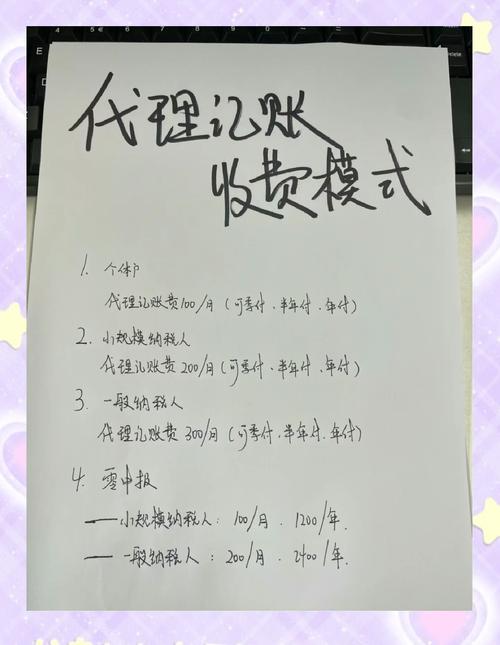 代理记账
收费模式
1. 个体户
代理记账费100/月(可季付、半年付、年付)
2. 小规模纳税人
代理记账费200/月(可季付、半年付、年付)
3. 一般纳税人
代理记账费300/月(可季付、半年付、年付)
4. 零申报
——小规模纳税人:100/月、1200/年.
——一般纳税人:200/月、2400/年.